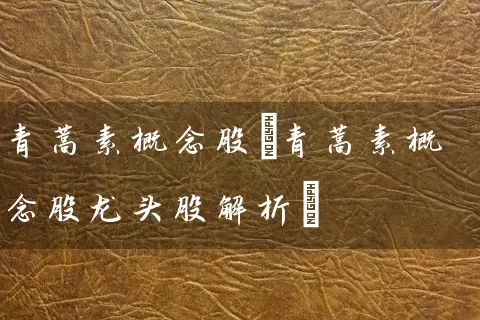 青蒿素概念股青蒿素概
念股龙头股解析